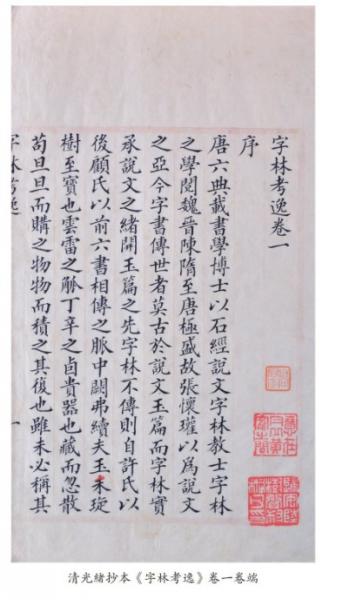 字林考逸卷一
序
唐六典載書學博士以石經說文字林教士字林
之學閱魏晉陳隋至唐極盛故張懷瓘以為說文
之亞今字書傳世者莫古於說文玉篇而字林實
承說文之緒開玉篇之先字林不傳則自許氏以
後顧氏以前六書相傳之脈中闕弗續夫玉朱琁
樹至寶也雲雷之觚丁辛之卣貴器也藏而忽散
苟旦旦而購之物物而積之其復也雖未必稱其
字林考逸 一
清光緒抄本《字林考逸》卷一卷端